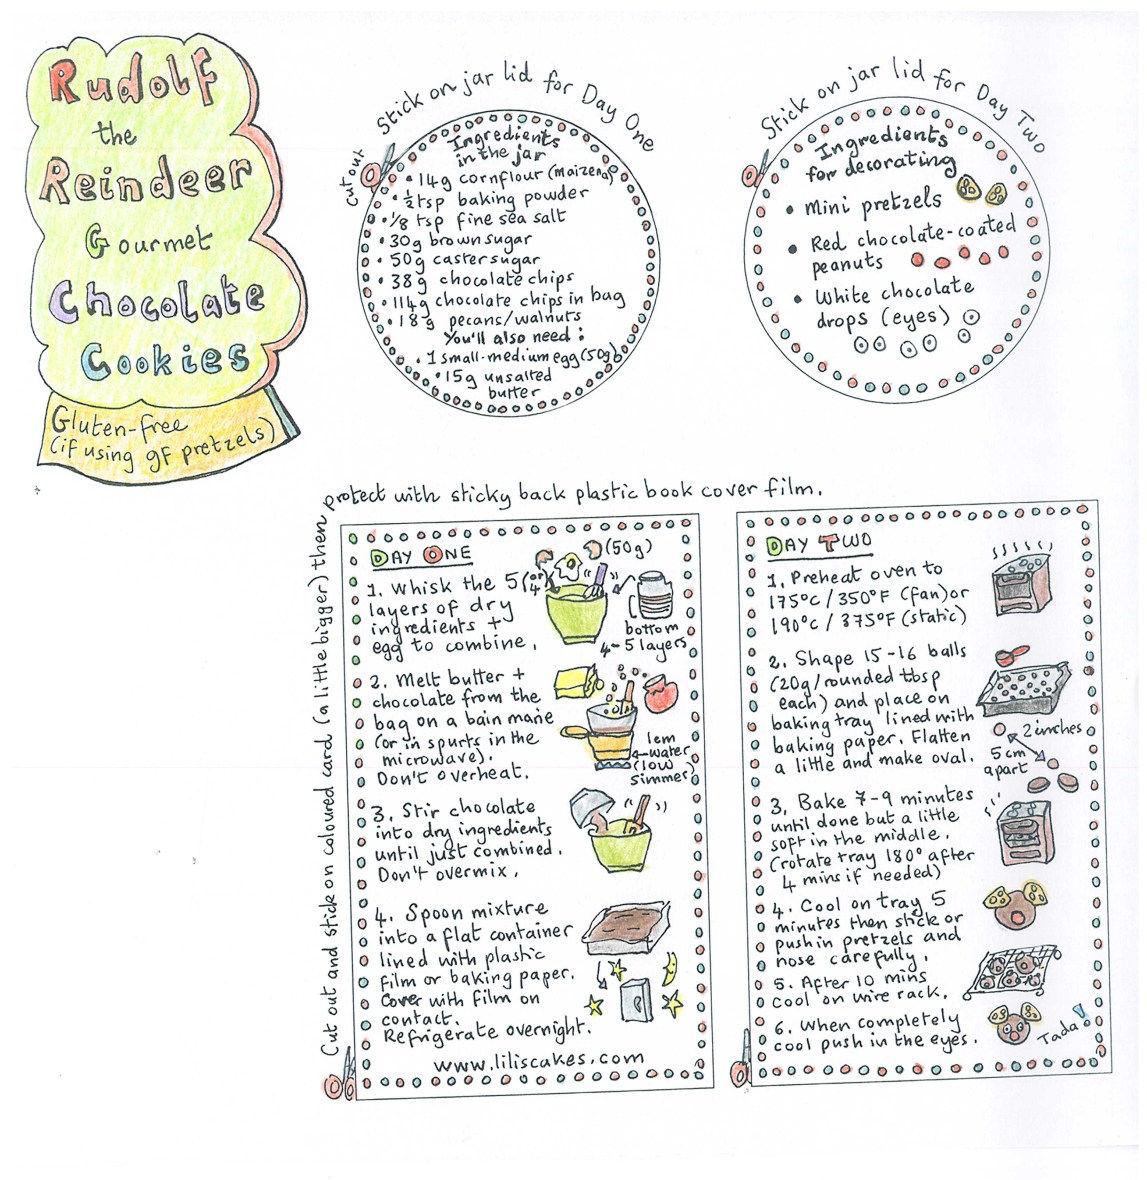 Rudolf
the
Reindeer
Gourmet
Chocolate
Cookies
Gluten-free
(if using gf pretzels)
Stick on jar lid for Day One
cut out
Ingredients
in the jar
• 14g cornflour (maizena)
• ½ tsp baking powder
• ⅛ tsp fine sea salt
• 30g brown sugar
• 50g caster sugar
• 38g chocolate chips
• 114g chocolate chips in bag
• 18g pecans/walnuts
You'll also need:
• 1 small-medium egg (50g)
• 15g unsalted
butter
Stick on jar lid for Day Two
Ingredients
for decorating
• Mini pretzels
• Red chocolate-coated
peanuts
• White chocolate
drops (eyes)
Cut out and stick on coloured card (a little bigger) then
protect with sticky back plastic book cover film.
DAY ONE
(50g)
1. Whisk the 5 (or 4)
layers of dry
ingredients +
egg to combine.
bottom
4-5 layers
2. Melt butter +
chocolate from the
bag on a bain marie
(or in spurts in the
microwave).
Don't overheat.
1cm
water
(low
simmer)
3. Stir chocolate
into dry ingredients
until just combined.
Don't overmix.
4. Spoon mixture
into a flat container
lined with plastic
film or baking paper.
Cover with film on
contact.
Refrigerate overnight.
www.liliscakes.com
DAY TWO
1. Preheat oven to
175°c/350°F (fan) or
190°c/375°F (static)
2. Shape 15-16 balls
(20g/rounded tbsp
each) and place on
baking tray lined with
baking paper. Flatten
a little and make oval.
2 inches
5cm
apart
3. Bake 7-9 minutes
until done but a little
soft in the middle.
(rotate tray 180° after
4 mins if needed)
4. Cool on tray 5
minutes then stick or
push in pretzels and
nose carefully.
5. After 10 mins
cool on wire rack.
6. When completely
cool push in the eyes.
Tada!